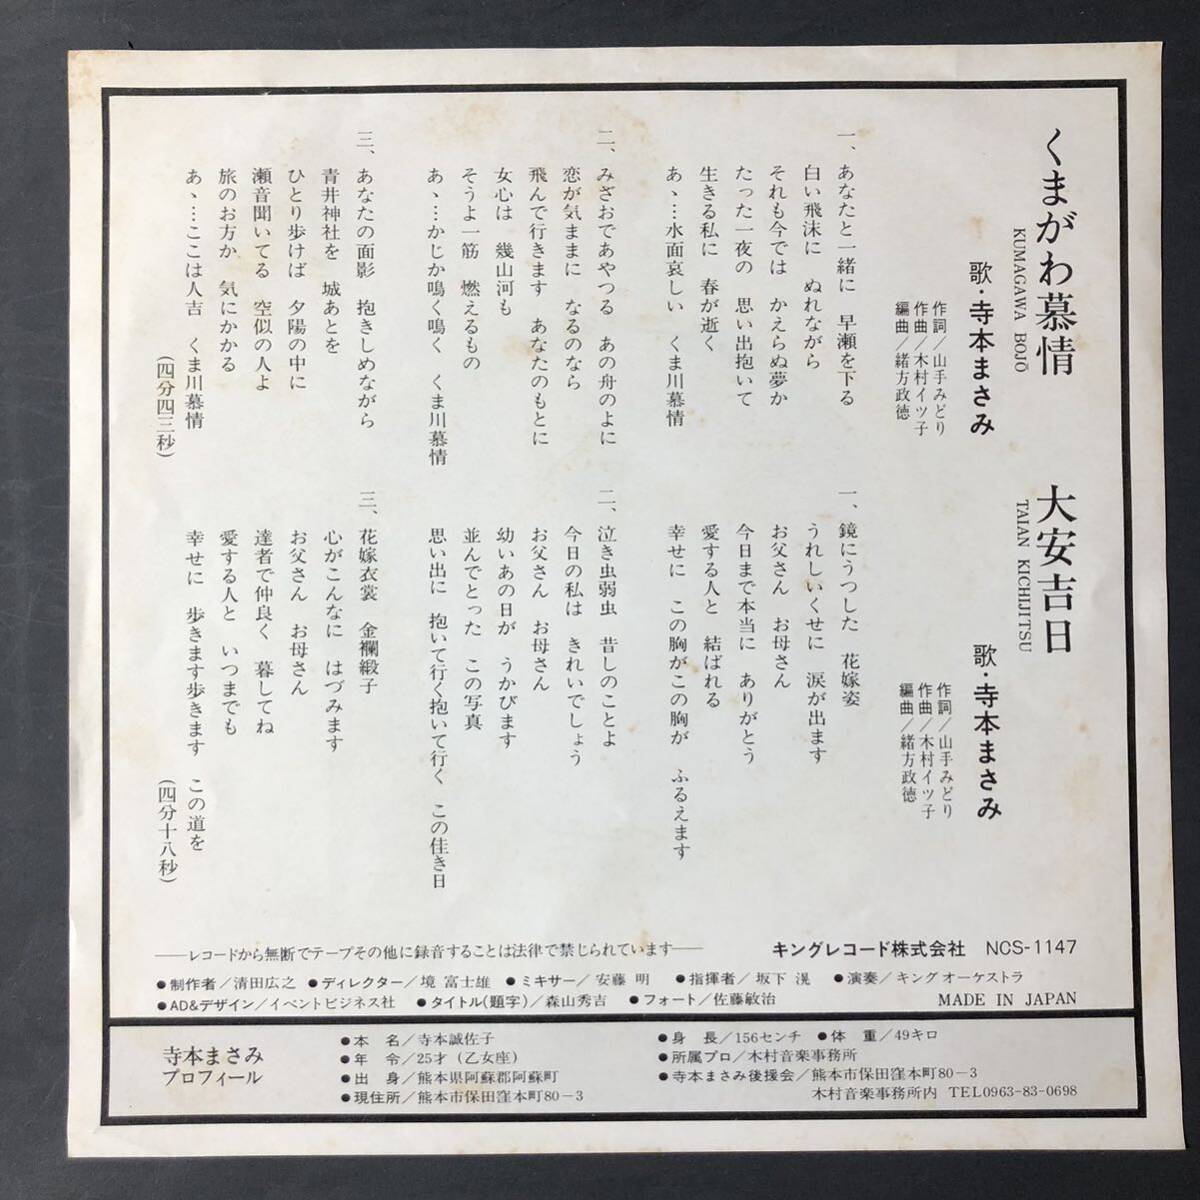 くまがわ慕情
KUMAGAWA BOJŌ
歌・寺本まさみ
作詞／山手みどり
作曲／木村イツ子
編曲／緒方政徳
一、あなたと一緒に 早瀬を下る
白い飛沫に ぬれながら
それも今では かえらぬ夢か
たった一夜の 思い出抱いて
生きる私に 春が逝く
あゝ…水面哀しい くま川慕情
二、みざおであやつる あの舟のよに
恋が気ままに なるのなら
飛んで行きます あなたのもとに
女心は 幾山河も
そうよ一筋 燃えるもの
あゝ…かじか鳴く鳴く くま川慕情
三、あなたの面影 抱きしめながら
青井神社を 城あとを
ひとり歩けば 夕陽の中に
瀬音聞いてる 空似の人よ
旅のお方か 気にかかる
あゝ…ここは人吉 くま川慕情
(四分四三秒)
大安吉日
TAIAN KICHIJITSU
歌・寺本まさみ
作詞／山手みどり
作曲／木村イツ子
編曲／緒方政徳
一、鏡にうつした 花嫁姿
うれしいくせに 涙が出ます
お父さん お母さん
今日まで本当に ありがとう
愛する人と 結ばれる
幸せに この胸がこの胸が ふるえます
二、泣き虫弱虫 昔しのことよ
今日の私は きれいでしょう
お父さん お母さん
幼いあの日が うかびます
並んでとった この写真
思い出に 抱いて行く抱いて行く この佳き日
三、花嫁衣裳 金襴緞子
心がこんなに はづみます
お父さん お母さん
達者で仲良く 暮してね
愛する人と いつまでも
幸せに 歩きます歩きます この道を
(四分十八秒)
──レコードから無断でテープその他に録音することは法律で禁じられています── キングレコード株式会社 NCS-1147
●制作者／清田広之 ●ディレクター／境 富士雄 ●ミキサー／安藤 明 ●指揮者／坂下 滉 ●演奏／キングオーケストラ
●AD&デザイン／イベントビジネス社 ●タイトル(題字)／森山秀吉 ●フォート／佐藤敏治 MADE IN JAPAN
寺本まさみ
プロフィール
●本 名／寺本誠佐子
●年 令／25才（乙女座）
●出 身／熊本県阿蘇郡阿蘇町
●現住所／熊本市保田窪本町80－3
●身 長／156センチ ●体 重／49キロ
●所属プロ／木村音楽事務所
●寺本まさみ後援会／熊本市保田窪本町80－3
木村音楽事務所内 TEL0963-83-0698